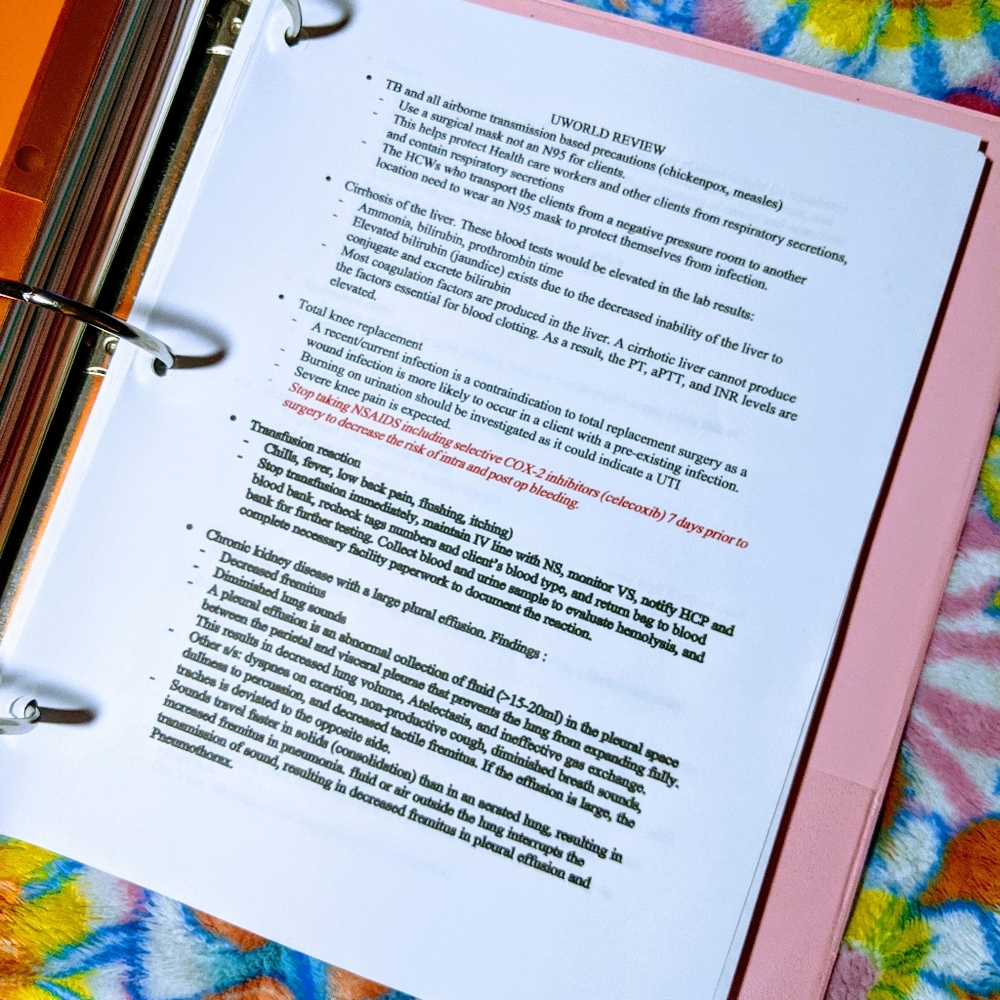 UWORLD REVIEW
• TB and all airborne transmission based precautions (chickenpox, measles)
- Use a surgical mask not an N95 for clients.
- This helps protect Health care workers and other clients from respiratory secretions,
and contain respiratory secretions
- The HCWs who transport the clients from a negative pressure room to another
location need to wear an N95 mask to protect themselves from infection.
• Cirrhosis of the liver. These blood tests would be elevated in the lab results:
- Ammonia, bilirubin, prothrombin time
- Elevated bilirubin (jaundice) exists due to the decreased inability of the liver to
conjugate and excrete bilirubin
- Most coagulation factors are produced in the liver. A cirrhotic liver cannot produce
the factors essential for blood clotting. As a result, the PT, aPTT, and INR levels are
elevated.
• Total knee replacement
- A recent/current infection is a contraindication to total replacement surgery as a
wound infection is more likely to occur in a client with a pre-existing infection.
- Burning on urination should be investigated as it could indicate a UTI
- Severe knee pain is expected.
- Stop taking NSAIDS including selective COX-2 inhibitors (celecoxib) 7 days prior to
surgery to decrease the risk of intra and post op bleeding.
• Transfusion reaction
- Chills, fever, low back pain, flushing, itching)
- Stop transfusion immediately, maintain IV line with NS, monitor VS, notify HCP and
blood bank, recheck tags numbers and client's blood type, and return bag to blood
bank for further testing. Collect blood and urine sample to evaluate hemolysis, and
complete necessary facility paperwork to document the reaction.
• Chronic kidney disease with a large plural effusion. Findings :
- Decreased fremitus
- Diminished lung sounds
- A pleural effusion is an abnormal collection of fluid (>15-20ml) in the pleural space
between the parietal and visceral pleurae that prevents the lung from expanding fully.
This results in decreased lung volume, Atelectasis, and ineffective gas exchange.
- Other s/s: dyspnea on exertion, non-productive cough, diminished breath sounds,
dullness to percussion, and decreased tactile fremitus. If the effusion is large, the
trachea is deviated to the opposite side.
- Sounds travel faster in solids (consolidation) than in an aerated lung, resulting in
increased fremitus in pneumonia. fluid or air outside the lung interrupts the
transmission of sound, resulting in decreased fremitus in pleural effusion and
Pneumothorax.